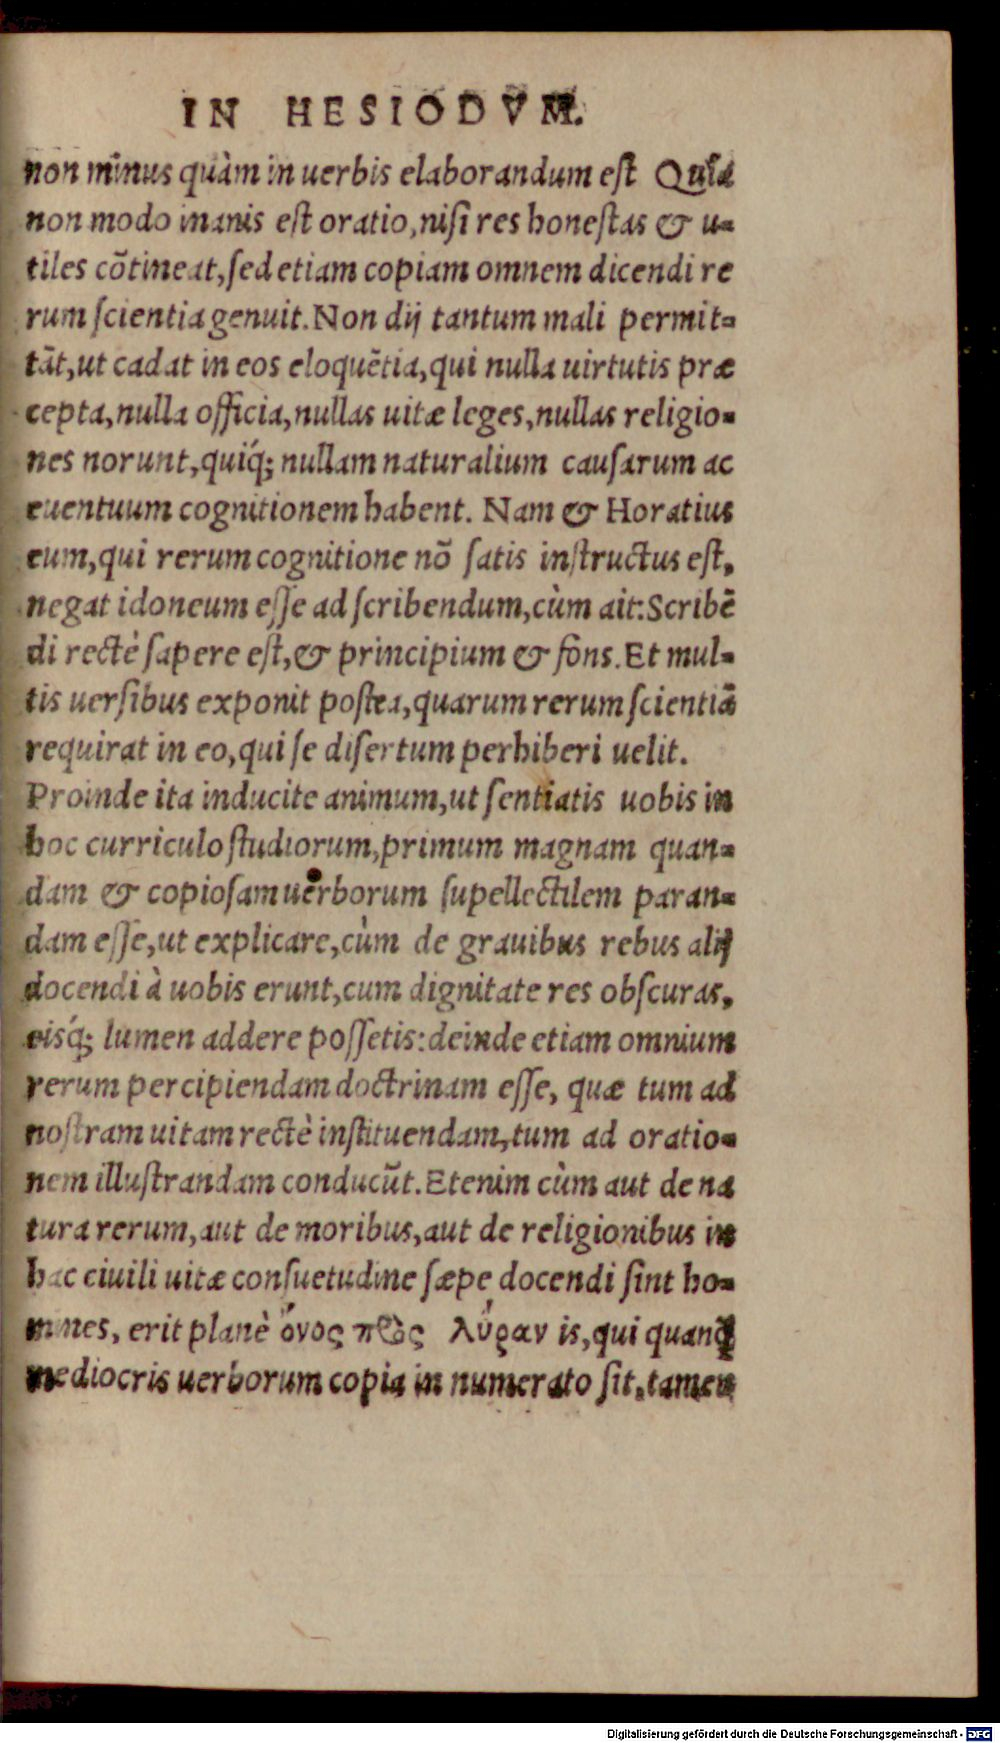 IN HESIODVM.
non minus quàm in uerbis elaborandum est Quia
non modo inanis est oratio, nisi res honestas & u-
tiles cōtineat, sed etiam copiam omnem dicendi re
rum scientia genuit. Non dij tantum mali permit-
tāt, ut cadat in eos eloquētia, qui nulla uirtutis præ
cepta, nulla officia, nullas uitæ leges, nullas religio-
nes norunt, quiq́; nullam naturalium causarum ac
euentuum cognitionem habent. Nam & Horatius
eum, qui rerum cognitione nō satis instructus est,
negat idoneum esse ad scribendum, cùm ait: Scribē
di rectè sapere est, & principium & fons. Et mul-
tis uersibus exponit postea, quarum rerum scientiā
requirat in eo, qui se disertum perhiberi uelit.
Proinde ita inducite animum, ut sentiatis uobis in
hoc curriculo studiorum, primum magnam quan-
dam & copiosam uerborum supellectilem paran-
dam esse, ut explicare, cùm de grauibus rebus alij
docendi à uobis erunt, cum dignitate res obscuras,
eisq́; lumen addere possetis: deinde etiam omnium
rerum percipiendam doctrinam esse, quæ tum ad
nostram uitam rectè instituendam, tum ad oratio-
nem illustrandam conducūt. Etenim cùm aut de na
tura rerum, aut de moribus, aut de religionibus in
hac ciuili uitæ consuetudine sæpe docendi sint ho-
mines, erit planè ὄνος πρὸς λύραν is, qui quanq̃
mediocris uerborum copia in numerato sit, tamen
Digitalisierung gefördert durch die Deutsche Forschungsgemeinschaft - DFG